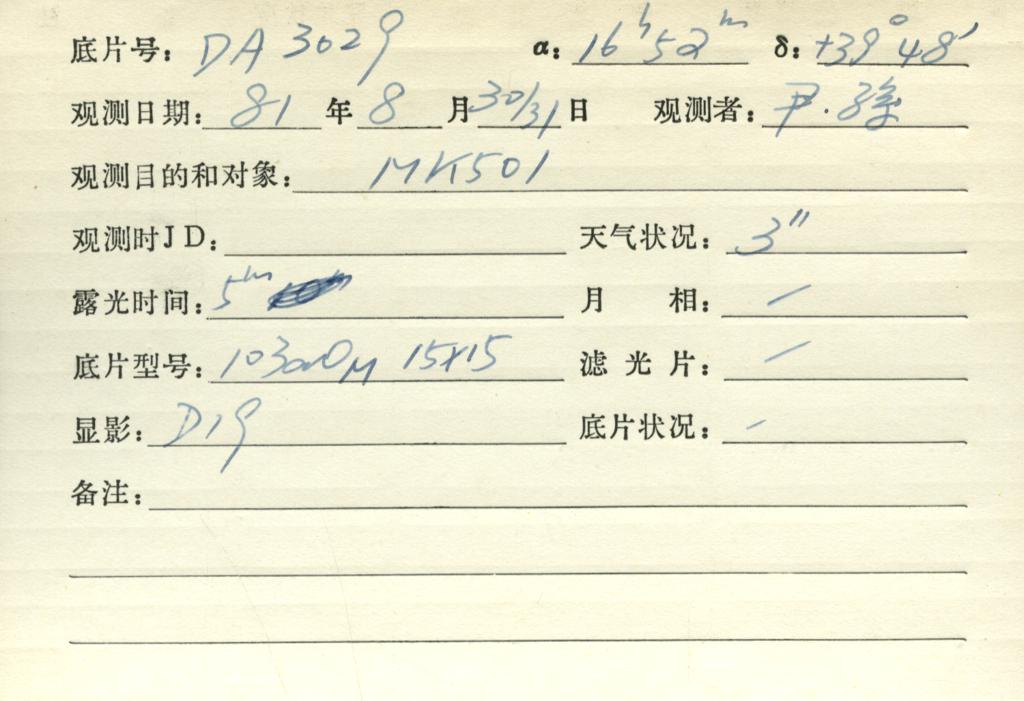 底片号: DA 3029 α: 16ʰ52ᵐ δ: +39°48′
观测日期: 81 年 8 月 30/31 日 观测者: 尹.孙
观测目的和对象: MK501
观测时JD: 天气状况: 3″
露光时间: 5ᵐ 月 相: /
底片型号: 103aO 15×15 滤光片: /
显影: D19 底片状况: -
备注: